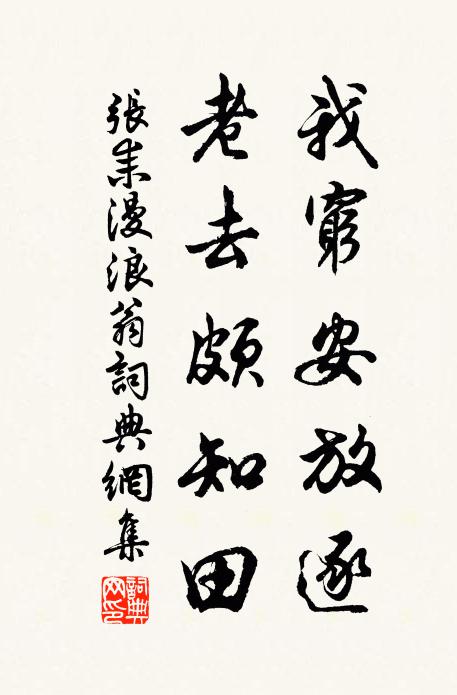 我窮安放逐
老去頗知田
張耒漫浪翁詞典網集
詞典網印